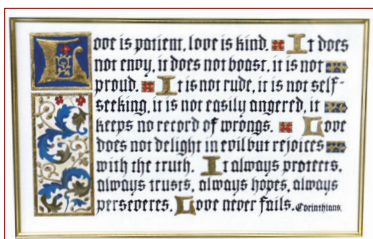 Love is patient, love is kind. It does
not envy, it does not boast, it is not
proud. It is not rude, it is not self-
seeking, it is not easily angered, it
keeps no record of wrongs. Love
does not delight in evil but rejoices
with the truth. It always protects,
always trusts, always hopes, always
perseveres. Love never fails. Corinthians.